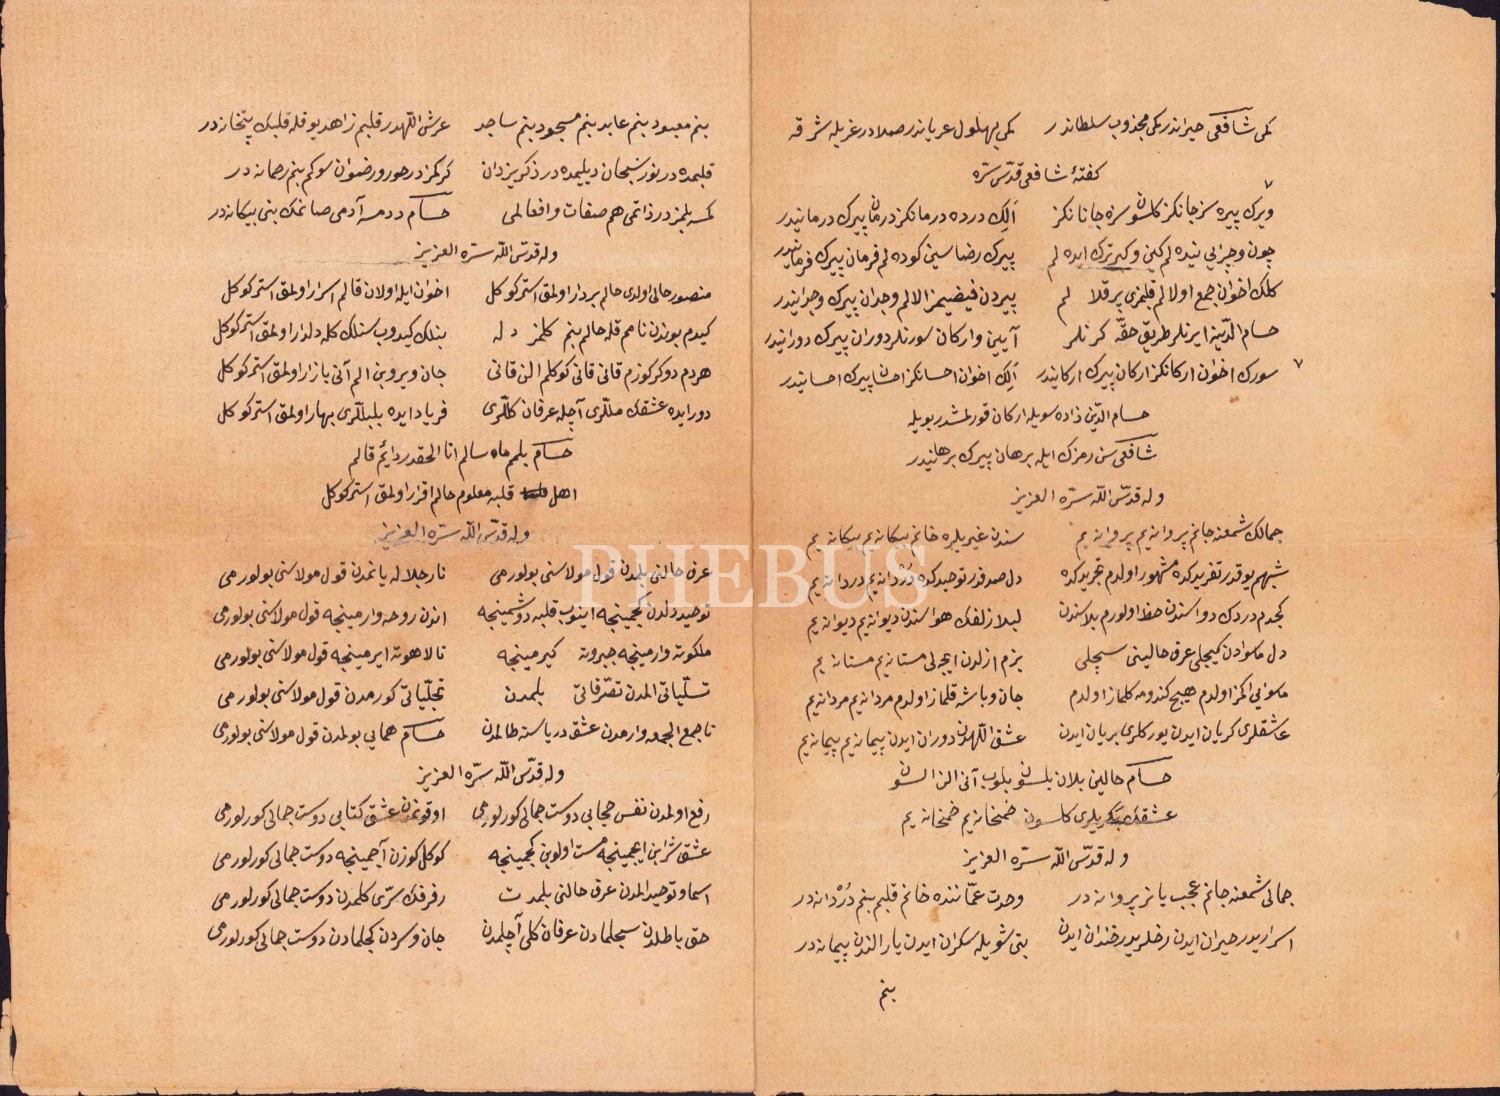 كمى شافعى حيراندر كمى مجذوب سلطاندر كمى بهلول عرياندر صلادر غريله شرقه
كفتۀ شافعى قدّس سرّه
ويرك پيره سز جانكز كلسون سزه جانانكز آلك درده درمانكز درمان پيرك درمانيدر
چون وچرايى نيده لم كينى وكبرى ترك ايده لم پيرك رضاسين كوده لم فرمان پيرك فرمانيدر
كلك اخوان جمع اولالم قلبمزى پر قلالم پيردن فيضيمز آلالم وجدان پيرك وجدانيدر
حسام الدّينه ايرنلر طريق حقّه كرنلر آيين واركان سورنلر دوران پيرك دورانيدر
سورك اخوان اركانكز اركان پيرك اركانيدر آلك اخوان احسانكز احسان پيرك احسانيدر
حسام الدّين زاده سويله اركان قورلمشدر بويله
شافعى سن رمزك ايله برهان پيرك برهانيدر
وله قدّس اللّه سرّه العزيز
جمالك شمعنه جانم پروانه يم پروانه يم سندن غيريلره خانم بيكانه يم بيكانه يم
شبهم يوقدر تفريدكده مشهور اولدم تجريدكده دل صدفدر توحيدكده دردانه يم دردانه يم
كجدم دردك دواسندن حظ اولورم بلاسندن ليلا زلفك هواسندن ديوانه يم ديوانه يم
دل ماسوادن كيجلى عرق حالينى سچلى بزم ازلدن ايچه لى مستانه يم مستانه يم
ماسوايى اكمز اولدم هيچ كندومه كلماز اولدم جان وباشه قلماز اولدم مردانه يم مردانه يم
عاشقلرى كريان ايدن يوركلرى بريان ايدن عشق اللّهدن دوران ايدن پيمانه يم پيمانه يم
حسام حالينى بلان بلسون بلوب آنى الن السون
كلسون خمخانه يم خمخانه يم
وله قدّس اللّه سرّه العزيز
جمالى شمعنه جانم عجب يانر پروانه در وحدت عمّاننده خانم قلبم بنم دُرْدانه در
اسراريدر حيران ايدن رخلريدر خندان ايدن بنى شويله سكران ايدن يار الندن پيمانه در
بنم
بنم معبود بنم عابد بنم مسجود بنم ساجد عرش اللّهدر قلبم زاهد يوقله قلبك بتخانه در
قلبمده در نور سبحان ديليمده در ذكر يزدان كركمز در حور ورضوان سوكم بنم رحمانه در
كمسه بلمز در ذاتمى هم صفات وافعالمى حسام ددمسه آدمى صانمك بنى بيكانه در
وله قدّس اللّه سرّه العزيز
منصور حالى اولدى حالم بردار اولمق استر كوكل اخوان ايله اولان قالم اسرار اولمق استر كوكل
كيدم بوندن نامم قله حالم بنم كلمز دله بنلك كيدوب سنلك كله دلدار اولمق استر كوكل
هردم دوكر كوزم قانى قانى كوكلم الن قانى جان ويروبن الم آنى بازار اولمق استر كوكل
دور ايده عشقك مللّرى آچله عرفان كللّرى فرياد ايده بلبللّرى بهار اولمق استر كوكل
حسام بلمم ماه سالم انا الحقدر دايم قالم
اهل قلبه معلوم حالم اقرار اولمق استر كوكل
وله قدّس اللّه سرّه العزيز
عرق حالنى بلمدن قول مولاسنى بولورمى نار جلاله يانمدن قول مولاسنى بولورمى
توحيد دلدن كچمينجه اينوب قلبه دوشمينجه اندن روحه وارمينجه قول مولاسنى بولورمى
ملكوته وارمينجه جبروته كيرمينجه تا لاهوته ايرمينجه قول مولاسنى بولورمى
تسلّياتى المدن تصرّفاتى بلمدن تجلّياتى كورمدن قول مولاسنى بولورمى
تا جمع الجمعه وارمدن عشق درياسنه طالمدن حسام همايى بولمدن قول مولاسنى بولورمى
وله قدّس اللّه سرّه العزيز
رفع اولمدن نفس حجابى دوست جمالى كورلورمى اوقونمدن عشق كتابى دوست جمالى كورلورمى
عشق شرابن ايچمينجه مست اولوبن كچمينجه كوكل كوزن آچمينجه دوست جمالى كورلورمى
اسما وتوحيد المدن عرق حالنى بلمدن رفرفك سرّى كلمدن دوست جمالى كورلورمى
حق باطلدن سچلمادن عرفان كلى آچلمدن جان وسردن كچلمادن دوست جمالى كورلورمى
PHEBUS